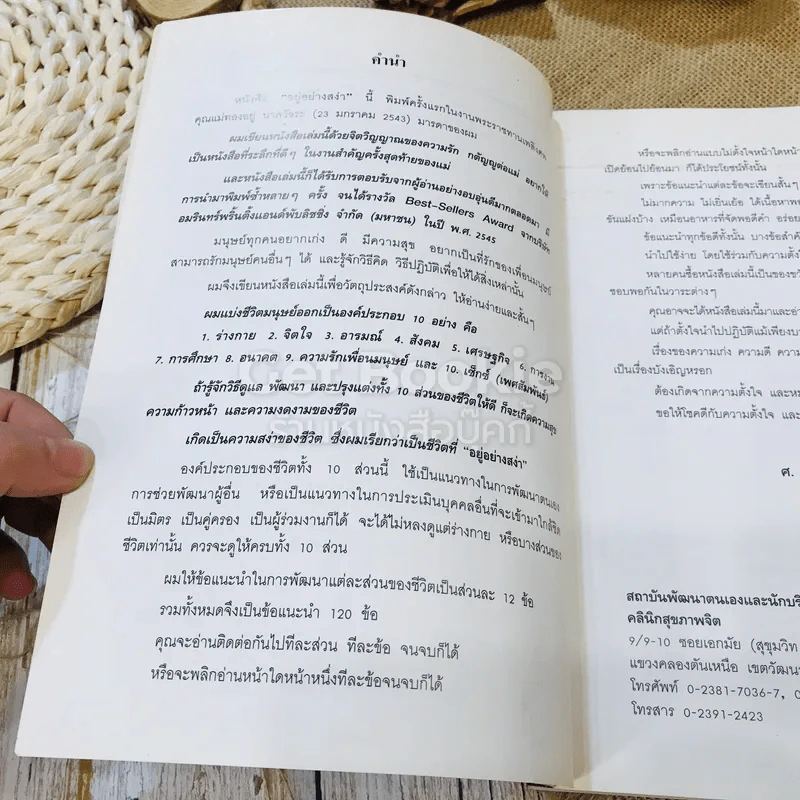 คำนำ
หนังสือ "อยู่อย่างสง่า" นี้ พิมพ์ครั้งแรกในงานพระราชทานเพลิงศพ
คุณแม่ทองอยู่ (23 มกราคม 2543) มารดาของผม
ผมเขียนหนังสือเล่มนี้ด้วยจิตวิญญาณของความรัก กตัญญูต่อแม่ อยากให้
เป็นหนังสือที่ระลึกที่ดีๆ ในงานสำคัญครั้งสุดท้ายของแม่
และหนังสือเล่มนี้ก็ได้รับการตอบรับจากผู้อ่านอย่างอบอุ่นดีมากตลอดมา มี
การนำมาพิมพ์ซ้ำหลายๆ ครั้ง จนได้รางวัล Best-Sellers Award จากบริษัท
อมรินทร์พริ้นติ้งแอนด์พับลิชชิ่ง จำกัด (มหาชน) ในปี พ.ศ. 2545
มนุษย์ทุกคนอยากเก่ง ดี มีความสุข อยากเป็นที่รักของเพื่อนมนุษย์
สามารถรักมนุษย์คนอื่นๆ ได้ และรู้จักวิธีคิด วิธีปฏิบัติเพื่อให้ได้สิ่งเหล่านั้น
ผมจึงเขียนหนังสือเล่มนี้เพื่อวัตถุประสงค์ดังกล่าว ให้อ่านง่ายและสั้นๆ
ผมแบ่งชีวิตมนุษย์ออกเป็นองค์ประกอบ 10 อย่าง คือ
1. ร่างกาย 2. จิตใจ 3. อารมณ์ 4. สังคม 5. เศรษฐกิจ 6. การงาน
7. การศึกษา 8. อนาคต 9. ความรักเพื่อนมนุษย์ และ 10. เซ็กซ์ (เพศสัมพันธ์)
ถ้ารู้จักวิธีดูแล พัฒนา และปรุงแต่งทั้ง 10 ส่วนของชีวิตให้ดี ก็จะเกิดความสุข
ความก้าวหน้า และความงดงามของชีวิต
เกิดเป็นความสง่าของชีวิต ซึ่งผมเรียกว่าเป็นชีวิตที่ "อยู่อย่างสง่า"
องค์ประกอบของชีวิตทั้ง 10 ส่วนนี้ ใช้เป็นแนวทางในการพัฒนาตนเอง
การช่วยพัฒนาผู้อื่น หรือเป็นแนวทางในการประเมินบุคคลอื่นที่จะเข้ามาใกล้ชิด
เป็นมิตร เป็นคู่ครอง เป็นผู้ร่วมงานก็ได้ จะได้ไม่หลงดูแต่ร่างกาย หรือบางส่วนของ
ชีวิตเท่านั้น ควรจะดูให้ครบทั้ง 10 ส่วน
ผมให้ข้อแนะนำในการพัฒนาแต่ละส่วนของชีวิตเป็นส่วนละ 12 ข้อ
รวมทั้งหมดจึงเป็นข้อแนะนำ 120 ข้อ
คุณจะอ่านติดต่อกันไปทีละส่วน ทีละข้อ จนจบก็ได้
หรือจะพลิกอ่านหน้าใดหน้าหนึ่งทีละข้อจนจบก็ได้
Get Bookie
ร้านหนังสือบุ๊คกี้
หรือจะพลิกอ่านแบบไม่ตั้งใจหน้าใดหน้า
เปิดย้อนไปย้อนมา ก็ได้ประโยชน์ทั้งนั้น
เพราะข้อแนะนำแต่ละข้อจะเขียนสั้นๆ
ไม่มากความ ไม่เยิ่นเย้อ ได้เนื้อหาพอ
ขันแฝงบ้าง เหมือนอาหารที่จัดพอดีคำ อร่อย
ข้อแนะนำทุกข้อดีทั้งนั้น บางข้อสำคั
นำไปใช้ง่าย โดยใช้ร่วมกับความตั้งใ
หลายคนซื้อหนังสือเล่มนี้เป็นของขว
ชอบพอกันในวาระต่างๆ
คุณอาจจะได้หนังสือเล่มนี้มาและอ่า
แต่ถ้าตั้งใจนำไปปฏิบัติแม้เพียงบา
เรื่องของความเก่ง ความดี ความ
เป็นเรื่องบังเอิญหรอก
ต้องเกิดจากความตั้งใจ และห
ขอให้โชคดีกับความตั้งใจ และ
ศ.
สถาบันพัฒนาตนเองและนักบริ
คลินิกสุขภาพจิต
9/9-10 ซอยเอกมัย (สุขุมวิท
แขวงคลองตันเหนือ เขตวัฒน
โทรศัพท์ 0-2381-7036-7, 0
โทรสาร 0-2391-2423